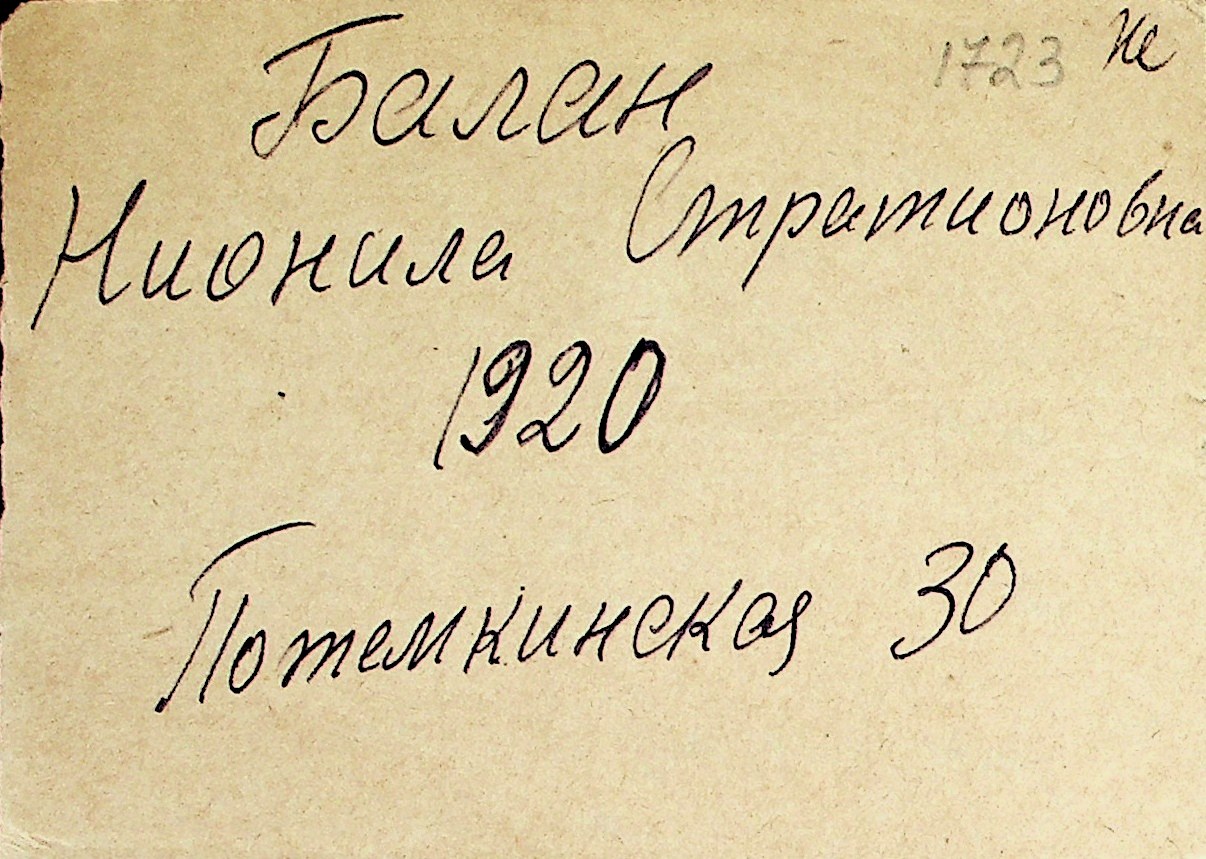 1723 Не
Балан
Нионила Стратионовна
1920
Потемкинская 30